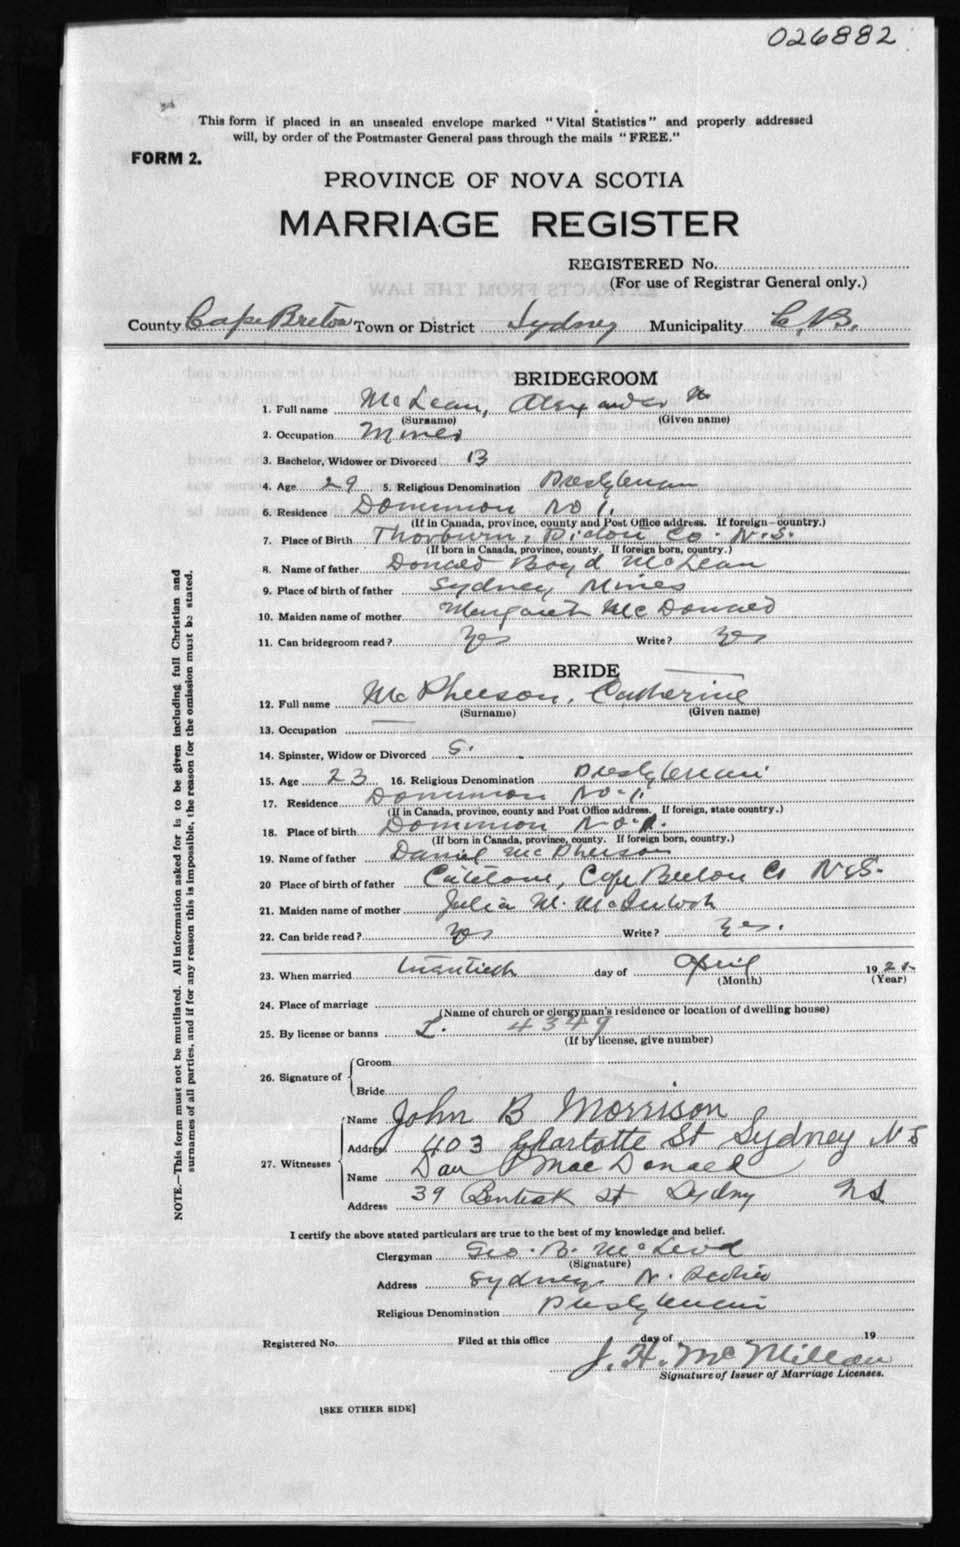 026882
This form if placed in an unsealed envelope marked "Vital Statistics" and properly addressed
will, by order of the Postmaster General pass through the mails "FREE."
FORM 2.
PROVINCE OF NOVA SCOTIA
MARRIAGE REGISTER
REGISTERED No.
(For use of Registrar General only.)
County Cape Breton Town or District Sydney Municipality C.B.
BRIDEGROOM
1. Full name McLean, Alexander
(Surname) (Given name)
2. Occupation Miner
3. Bachelor, Widower or Divorced B
4. Age 29 5. Religious Denomination Presbyterian
6. Residence Dominion No 1.
(If in Canada, province, county and Post Office address. If foreign—country.)
7. Place of Birth Thorburn, Pictou Co. N.S.
(If born in Canada, province, county. If foreign born, country.)
8. Name of father Donald Boyd McLean
9. Place of birth of father Sydney Mines
10. Maiden name of mother Margaret McDonald
11. Can bridegroom read? Yes Write? Yes
BRIDE
12. Full name McPherson, Catherine
(Surname) (Given name)
13. Occupation —
14. Spinster, Widow or Divorced S.
15. Age 23 16. Religious Denomination Presbyterian
17. Residence Dominion No. 1.
(If in Canada, province, county and Post Office address. If foreign, state country.)
18. Place of birth Dominion No. 1.
(If born in Canada, province, county. If foreign born, country.)
19. Name of father Daniel McPherson
20 Place of birth of father Catalone, Cape Breton Co N.S.
21. Maiden name of mother Julia M. McIntosh
22. Can bride read? Yes Write? Yes.
23. When married twentieth day of April 192
(Month) (Year)
24. Place of marriage
(Name of church or clergyman's residence or location of dwelling house)
25. By license or banns L. 4349
(If by license, give number)
26. Signature of Groom
Bride
27. Witnesses
Name John B Morrison
Address 403 Charlotte St Sydney N S
Name Dan P MacDonald
Address 39 Bentick St Sydny NS
I certify the above stated particulars are true to the best of my knowledge and belief.
Clergyman Geo. B. McLeod
(Signature)
Address Sydney, N. Scotia
Religious Denomination Presbyterian
Registered No. Filed at this office day of 19
J. H. McMillan
Signature of Issuer of Marriage Licenses.
[SEE OTHER SIDE]
NOTE.—This form must not be mutilated. All information asked for is to be given including full Christian and
surnames of all parties, and if for any reason this is impossible, the reason for the omission must be stated.